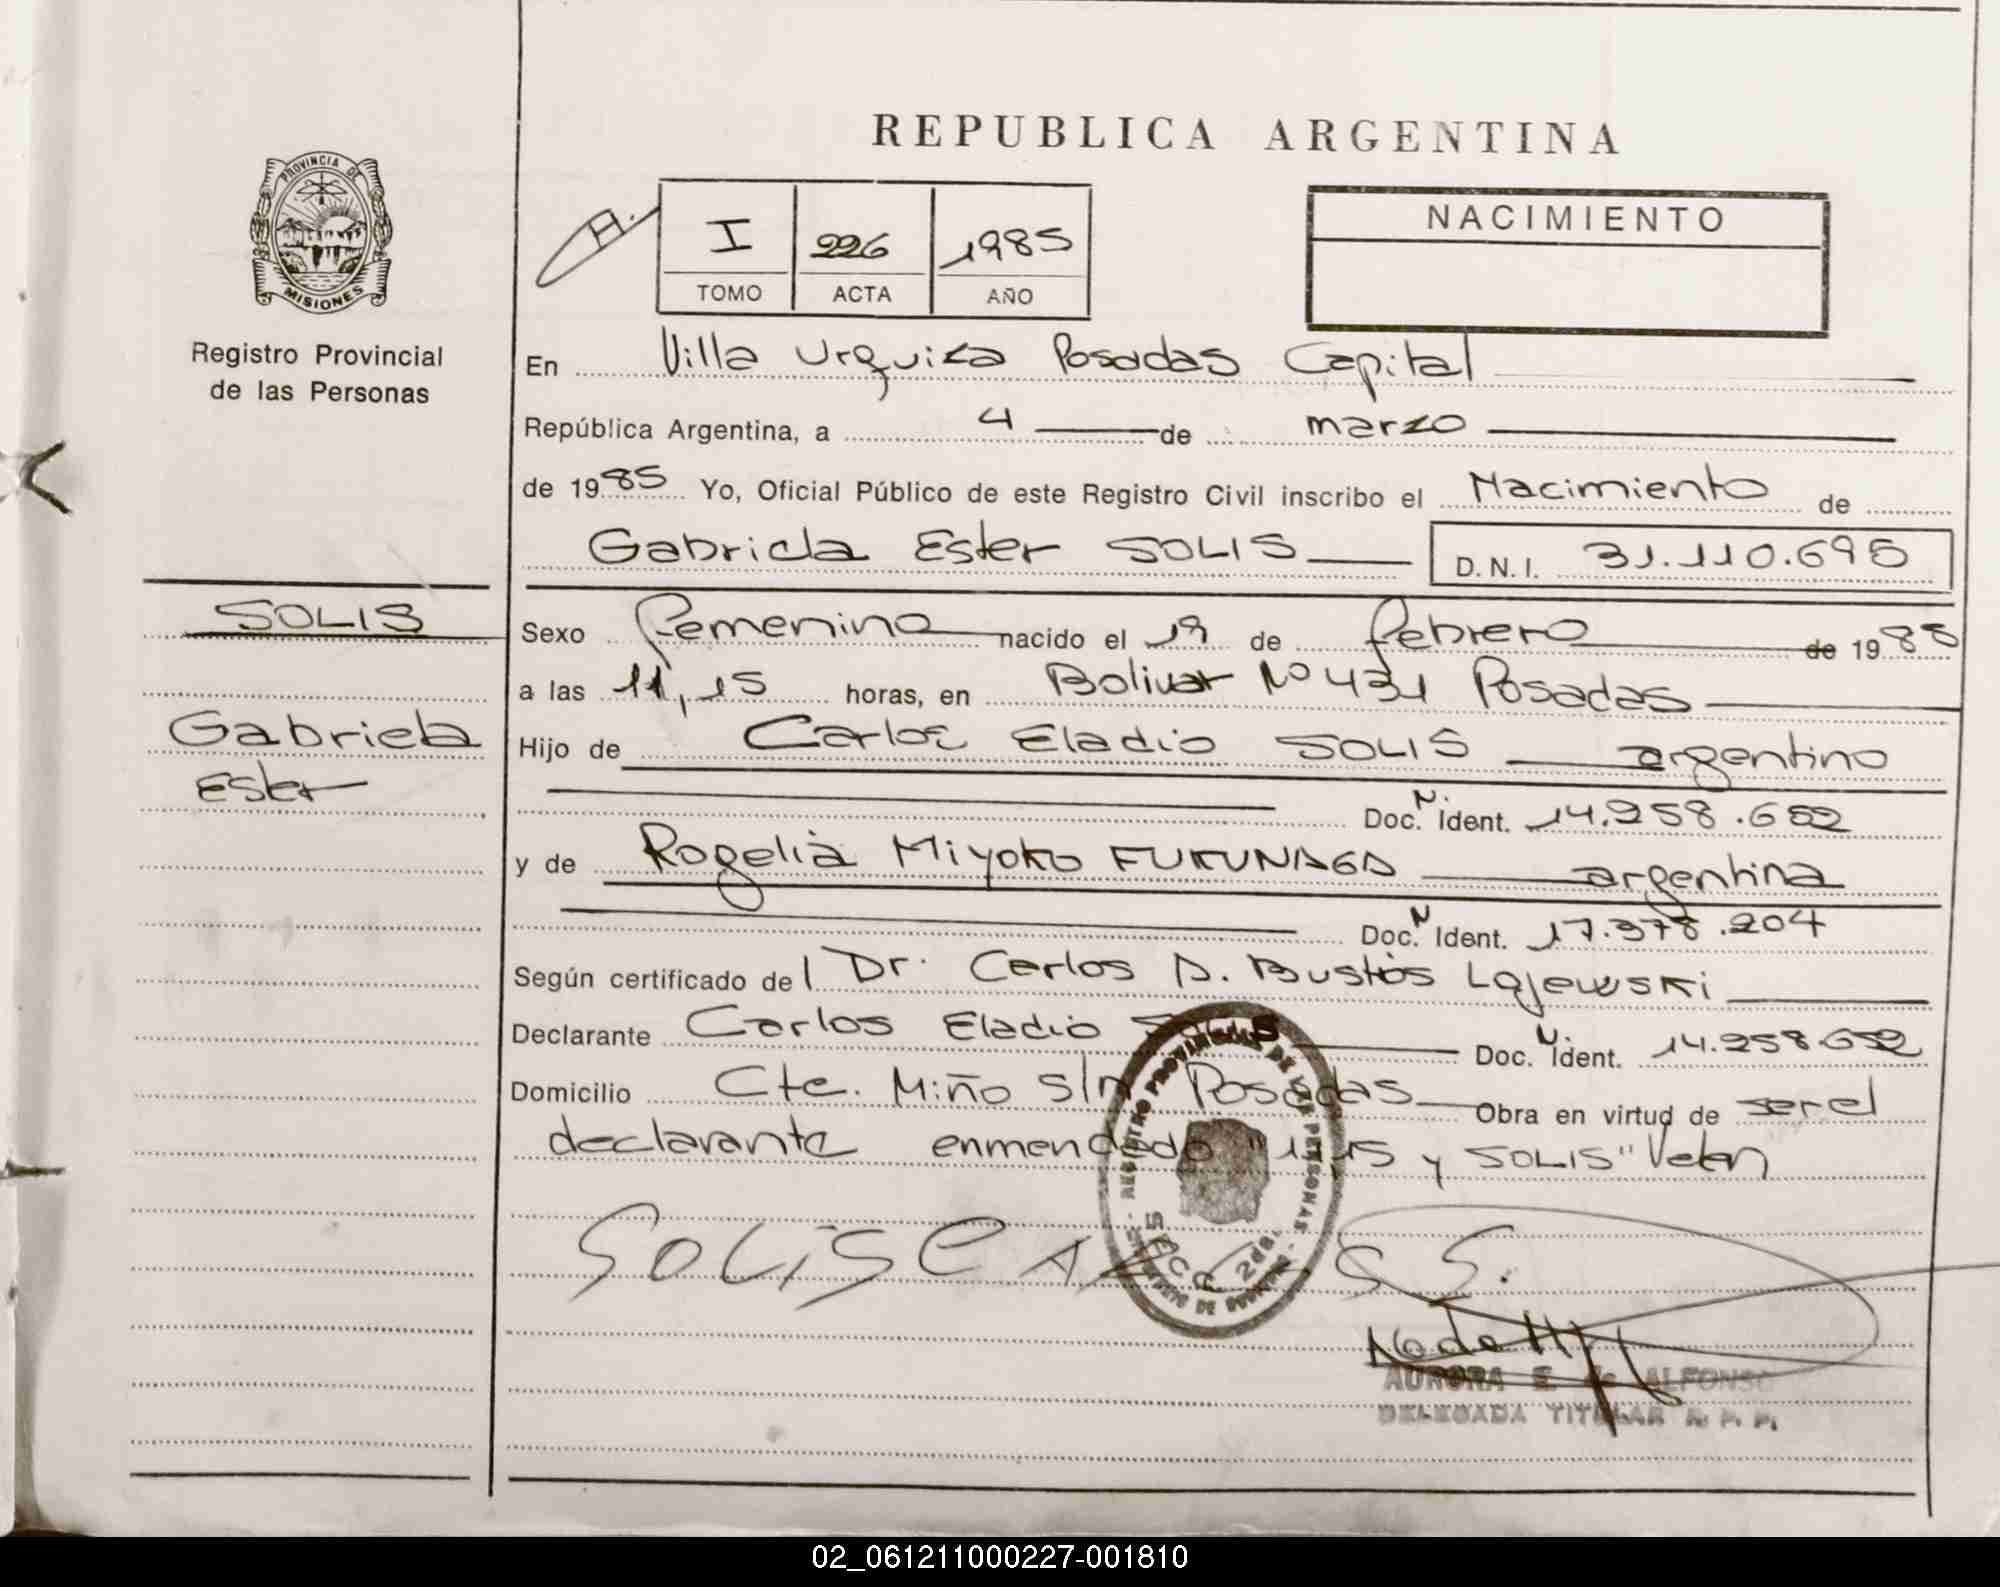 REPUBLICA ARGENTINA
PROVINCIA DE MISIONES
Registro Provincial
de las Personas
I 226 1985
TOMO ACTA AÑO
NACIMIENTO
En Villa Urquiza Posadas Capital
República Argentina, a 4 de marzo
de 1985 Yo, Oficial Público de este Registro Civil inscribo el Nacimiento de
Gabriela Ester SOLIS D.N.I. 31.110.695
SOLIS
Gabriela
Ester
Sexo Femenino nacido el 19 de febrero de 1985
a las 11,15 horas, en Bolivar Nº 431 Posadas
Hijo de Carlos Eladio SOLIS argentino
Doc. N. Ident. 14.258.652
y de Rogelia Miyoko FUKUNAGA argentina
Doc. N Ident. 17.378.204
Según certificado del Dr. Carlos A. Bustos Lajewski
Declarante Carlos Eladio SOLIS Doc. N Ident. 14.258.652
Domicilio Cte. Miño s/n Posadas Obra en virtud de ser el
declarante enmendado "11,15 y SOLIS" Valen
SOLIS CARLOS S.
REGISTRO PROVINCIAL DE LAS PERSONAS
AURORA E. de ALFONSO
DELEGADA TITULAR R. P. P.
02_061211000227-001810